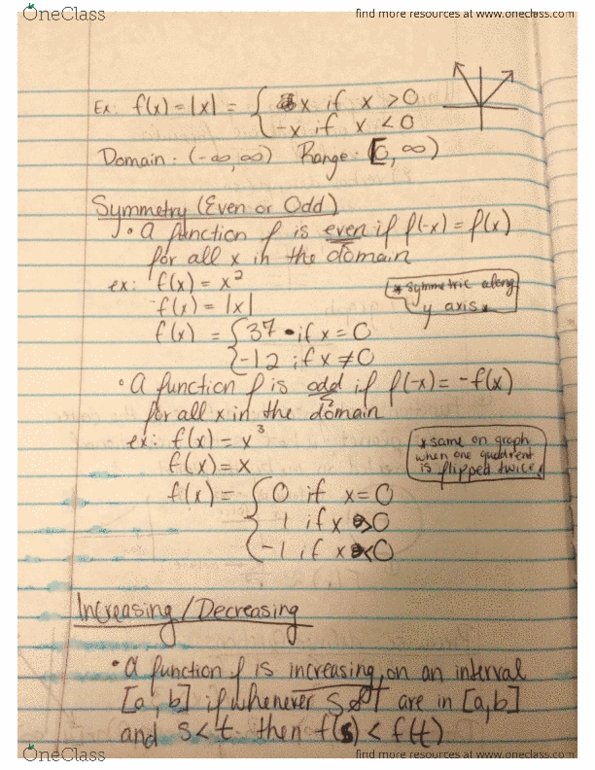 OneClass
find more resources at www.oneclass.com
Ex: f(x) = |x| = { x if x > 0
-x if x < 0
Domain: (-∞, ∞) Range: [0, ∞)
Symmetry (Even or Odd)
• A function f is even if f(-x) = f(x)
for all x in the domain
ex: f(x) = x²
f(x) = |x|
* symmetric along
y axis *
f(x) = { 37 • if x = 0
-12 if x ≠ 0
• A function f is odd if f(-x) = -f(x)
for all x in the domain
ex: f(x) = x³
f(x) = x
* same on graph
when one quadrent
is flipped twice *
f(x) = { 0 if x = 0
1 if x > 0
-1 if x < 0
Increasing / Decreasing
• A function f is increasing on an interval
[a, b] if whenever s & t are in [a, b]
and s < t then f(s) < f(t)
OneClass
find more resources at www.oneclass.com